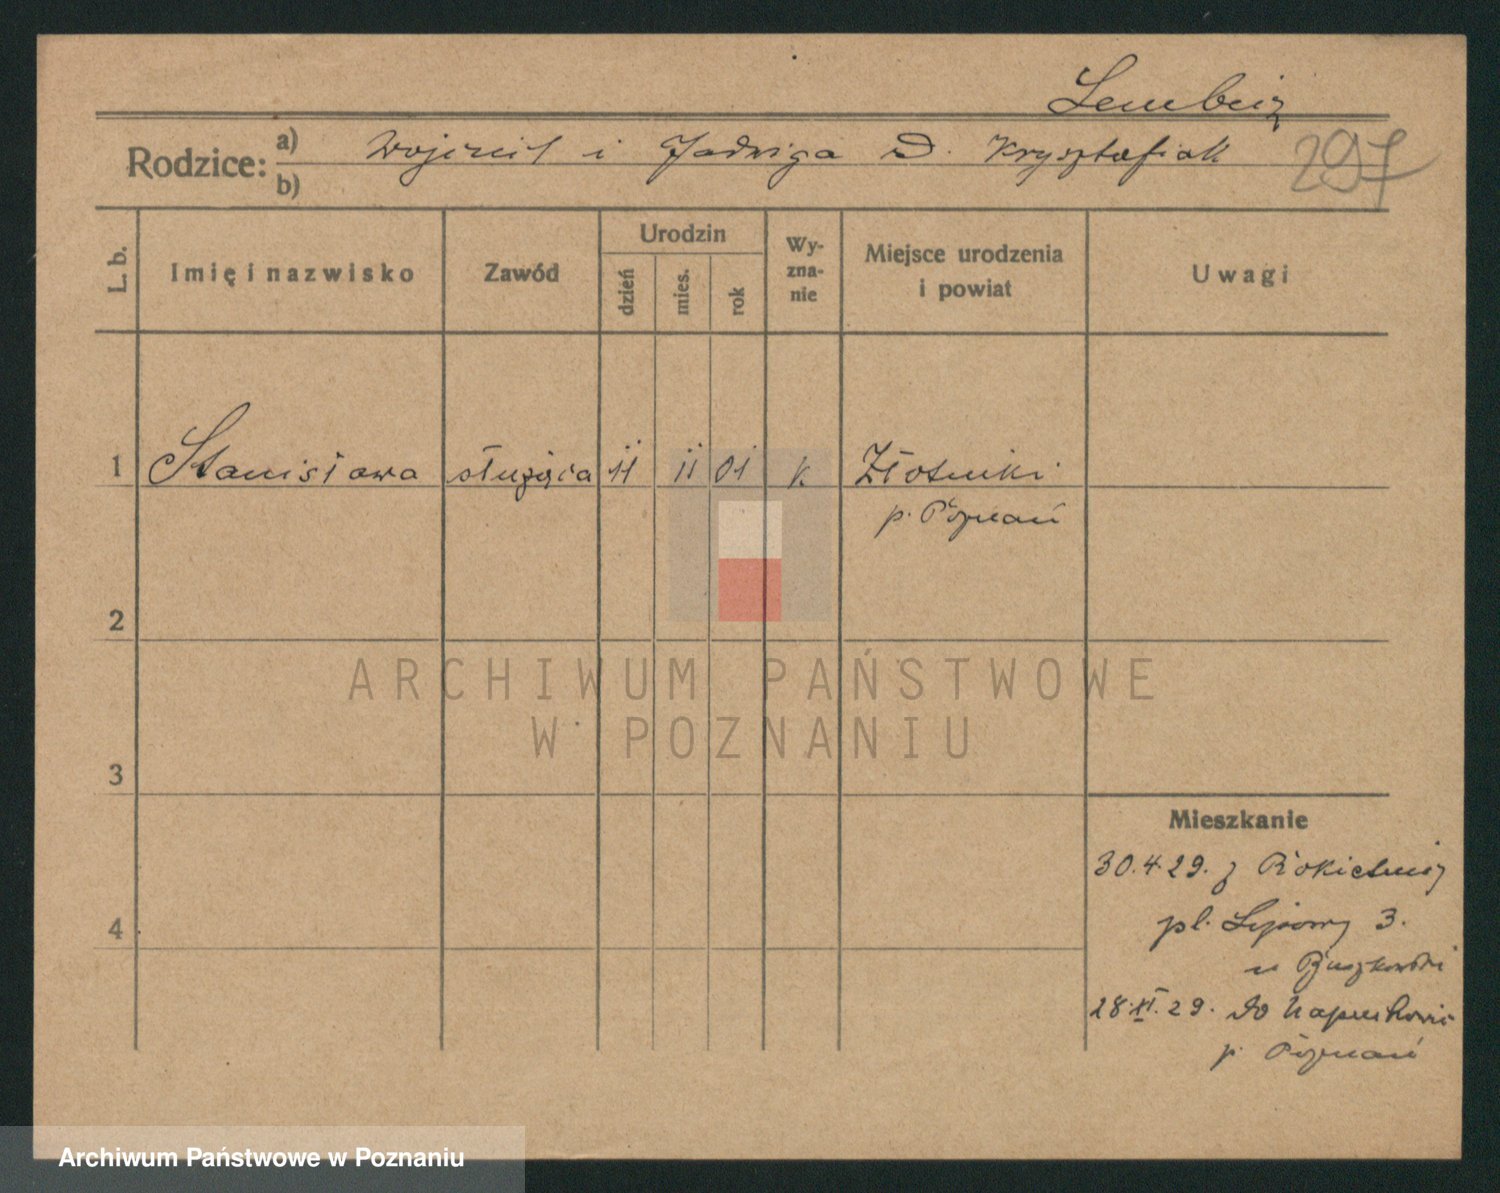 Rodzice: a) Wojciech i Jadwiga d. Krysztofiak 297
b)
L. b. Imię i nazwisko Zawód Urodzin dzień mies. rok Wyznanie Miejsce urodzenia i powiat Uwagi
1 Stanisława służąca 11 11 01 k. Złotniki
p. Poznań
2
ARCHIWUM PAŃSTWOWE
W POZNANIU
3
Mieszkanie
30.4.29. z Rokietnicy
4
pl. 3.
u
28.XI.29. do
p. Poznań
Archiwum Państwowe w Poznaniu